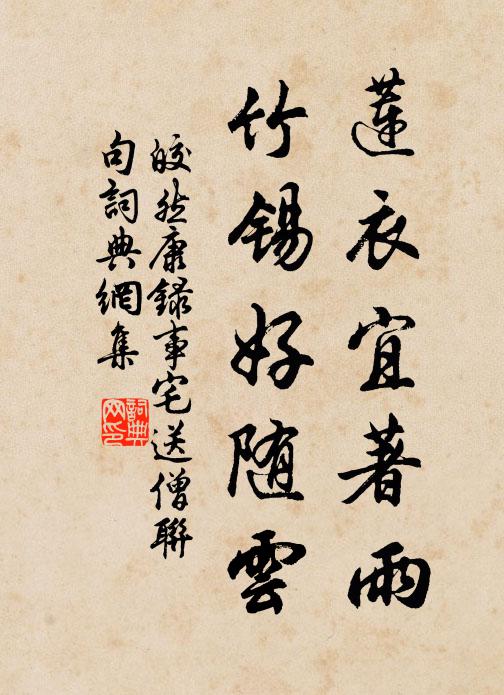 蓮衣宜著雨
竹錫好随雲
皎然康録事宅送僧聯
句詞典網集
詞典
网印